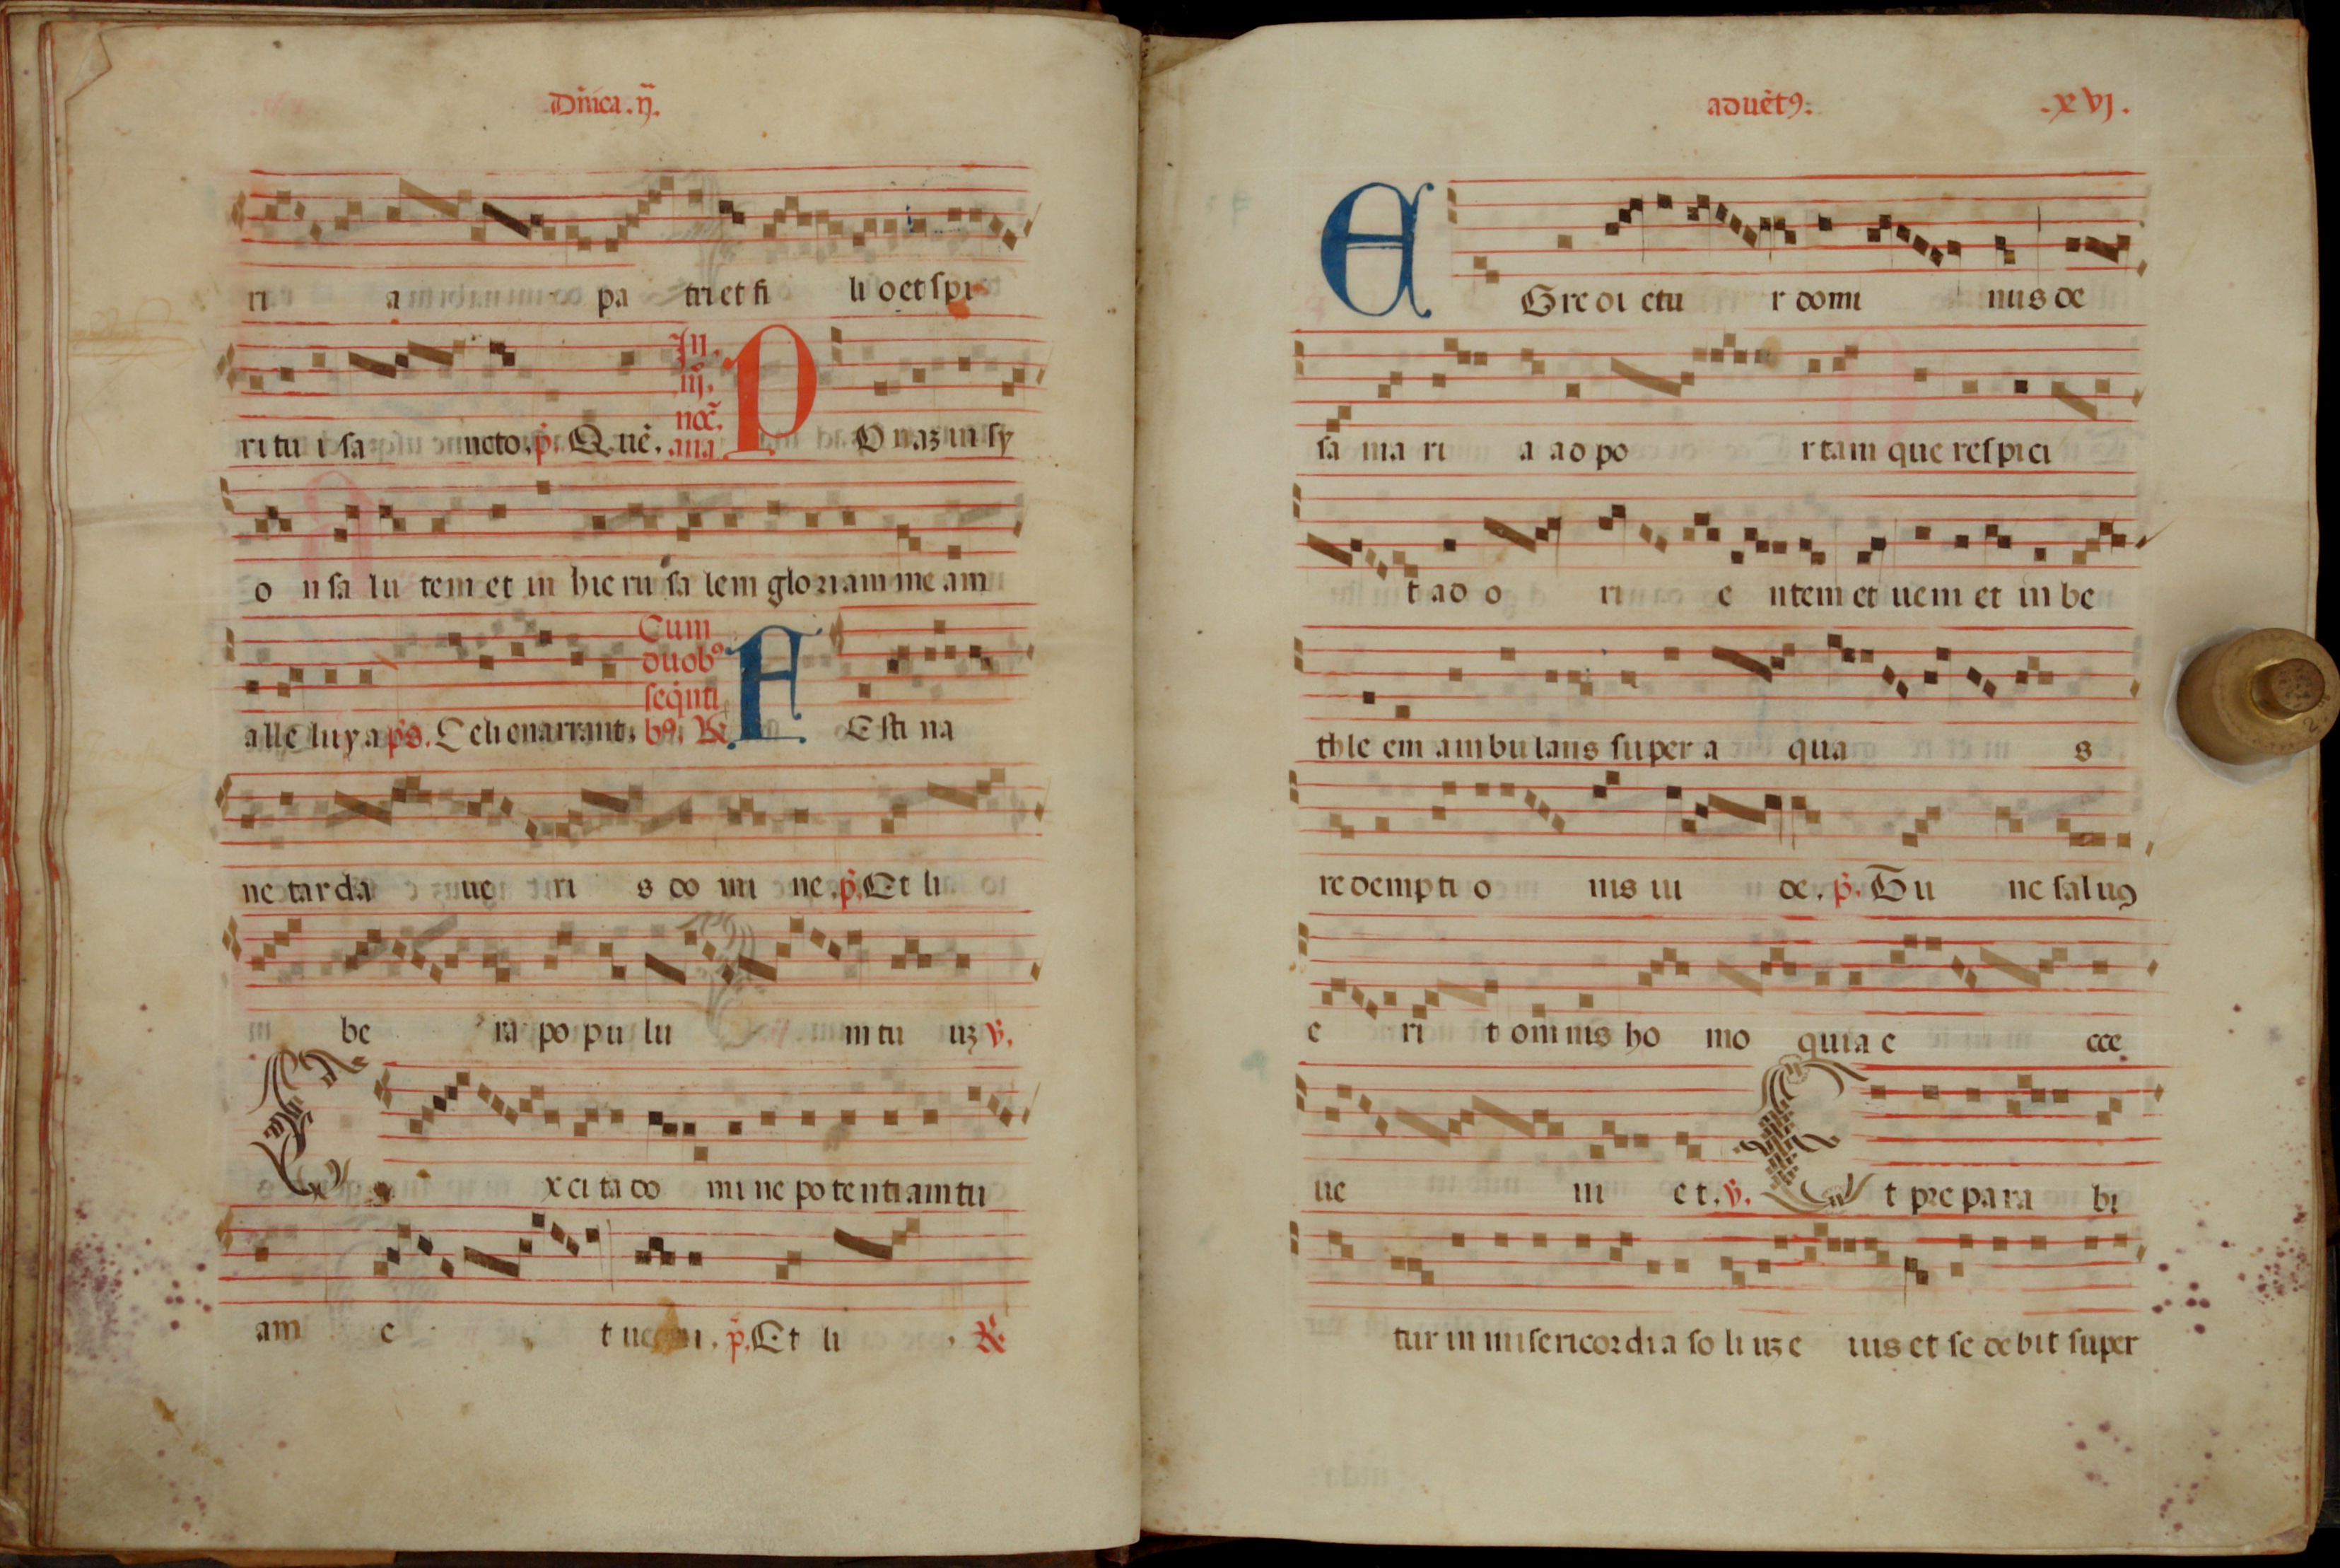 Dñica. ij.
ri a pa tri et fi li o et spi
ri tu i sa ncto. p̃. Quē. In. iij. noc̃. ana P Onaz in sy
o n sa lu tem et in hie ru sa lem gloriam me am
alle luya ps. Celi enarrant. Cum duobꝰ seq̃nti bꝰ. R̃. F Esti na
ne tar da ue ri s do mi ne. p̃. Et li
be ra po pu lu m tu uz v̉.
E xci ta do mi ne po tenti am tu
am e t ueni. p̃. Et li R̃.
aduētꝰ. .xvj.
E Gredi etu r domi nus de
sa ma ri a ad po rtam que respici
t ad o ri e ntem et uem et in be
thle em ambulans super a qua s
redempti o nis iu de. p̃. Tu nc saluꝰ
e ri t omnis ho mo quia e cce
ue ni et. v̉. E t prepara bi
tur in misericordia so li uz e ius et se debit super